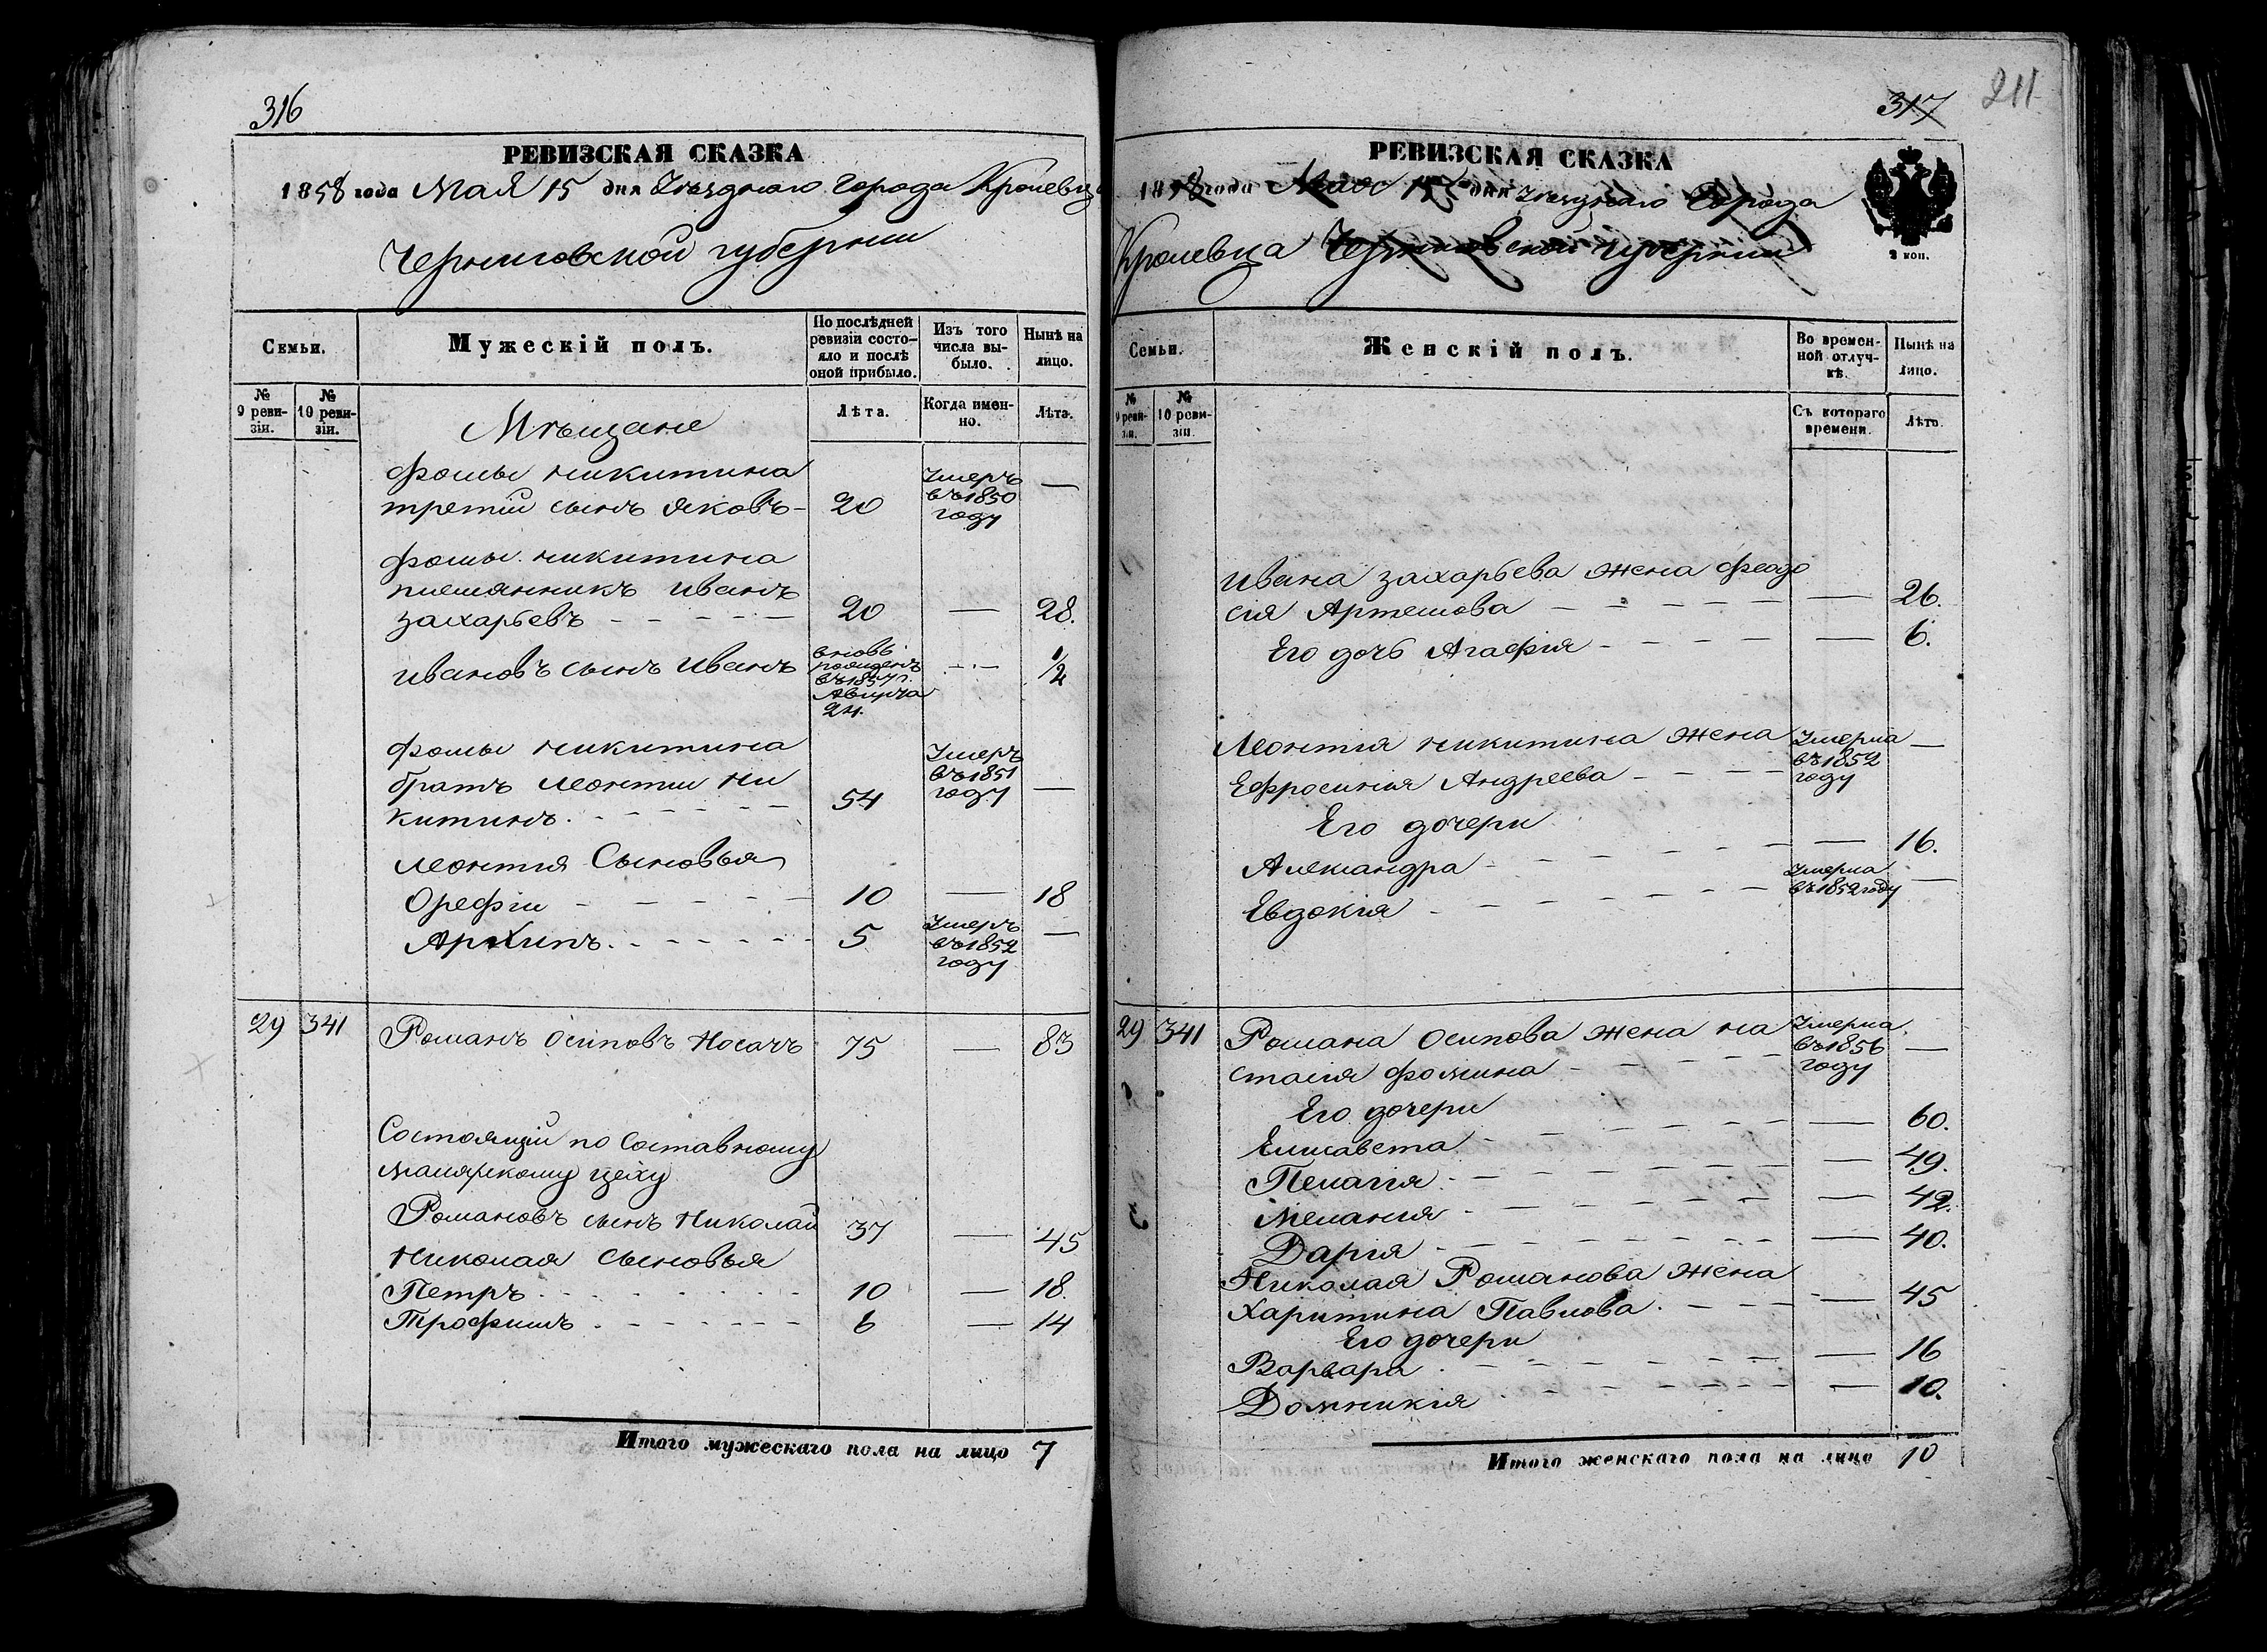 316
РЕВИЗСКАЯ СКАЗКА
1858 года Мая 15 дня Уезднаго города Кролевца
Черниговской губернии
Семьи.
Мужескій полъ.
По послѣдней ревизіи состо-
яло и послѣ
оной прибыло.
Изъ того
числа вы-
было.
Нынѣ на
лицо.
№
9 реви-
зіи.
№
10 реви-
зіи.
Лѣта.
Когда имен-
но.
Лѣта.
Мѣщане
Фомы Никитина
третій сынъ Яковъ - 20 Умеръ въ 1850 году —
Фомы Никитина
племянникъ Иванъ
Захарьевъ - - - - - 20 — 28.
Ивановъ сынъ Иванъ вновь рожденъ въ 1857 г. Августа 24. - - - 1/2
Фомы Никитина
братъ Леонтій Ни
китинъ. - - - - - 54 Умеръ въ 1851 году —
Леонтія Сыновья
Орефій - - - - - 10 — 18
Архипъ. - - - - - - 5 Умеръ въ 1852 году —
29 341 Романъ Осиповъ Носачъ 75 — 83
Состоящій по Составному
малярскому цеху
Романовъ сынъ Николай 37 — 45
Николая Сыновья
Петръ - - - - - - - - 10 — 18.
Трофимъ - - - - - - 6 — 14
Итого мужескаго пола на лицо 7
317
211
РЕВИЗСКАЯ СКАЗКА
1858 года Мая 15 дня Уезднаго Города
Кролевца Черниговской губернии
2 коп.
Семьи.
Женскій полъ.
Во времен-
ной отлуч-
кѣ.
Нынѣ на
лицо.
№
9 реви-
зіи.
№
10 реви-
зіи.
Съ котораго
времени.
Лѣта.
Ивана Захарьева жена Феодо
сія Артемова - - - - - — 26.
Его дочь Агафія - - - - — 6.
Леонтія Никитина жена
Ефросинія Андреева - - - - Умерла въ 1852 году —
Его дочери
Александра - - - - - - — 16.
Евдокія - - - - - - Умерла въ 1852 году —
29 341 Романа Осипова жена На
стасія Фомина - - - - - Умерла въ 1856 году —
Его дочери
Елисавета - - - - - - — 60.
Пелагія - - - - - - — 49.
Меланія - - - - - - — 42.
Дарія - - - - - - - — 40.
Николая Романова жена
Харитина Павлова. - - - — 45
Его дочери
Варвара - - - - - - — 16
Домникія - - - - - - — 10.
Итого женскаго пола на лицо 10